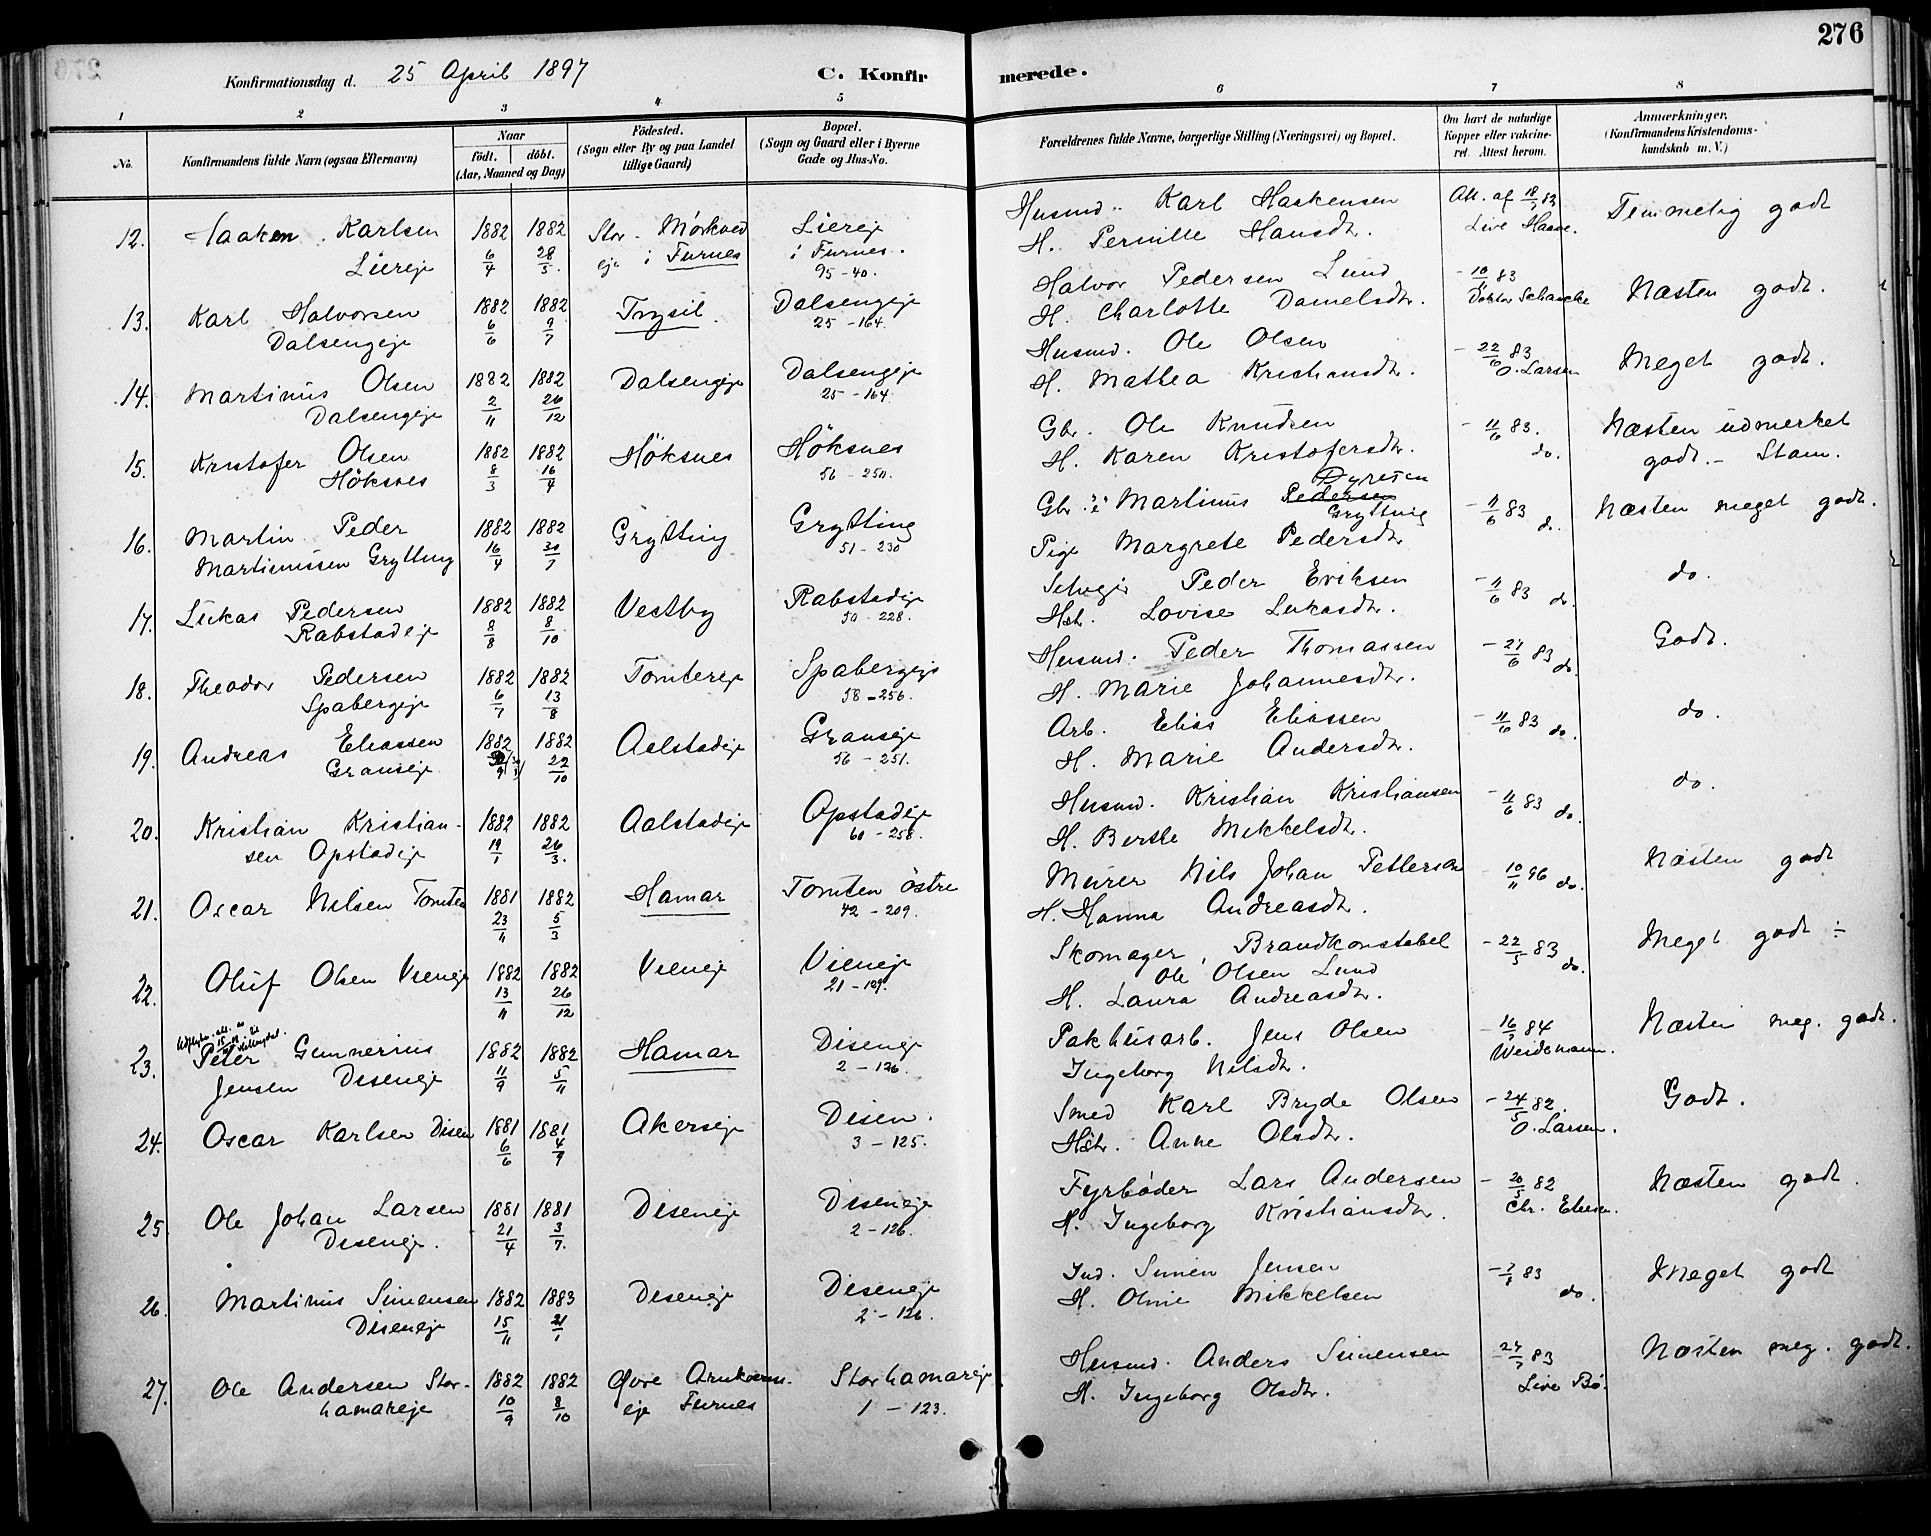 276
Konfirmationsdag d. 25 April 1897
C. Konfirmerede.
1 2 3 4 5 6 7 8
No.
Konfirmandens fulde Navn (ogsaa Efternavn)
Naar
födt. döbt.
(Aar, Maaned og Dag)
Födested.
(Sogn eller By og paa Landet
tillige Gaard)
Bopæl.
(Sogn og Gaard eller i Byerne
Gade og Hus-No.
Forældrenes fulde Navne, borgerlige Stilling (Næringsvei) og Bopæl.
Om havt de naturlige
Kopper eller vakcineret. Attest herom.
Anmærkninger.
(Konfirmandens Kristendomskundskab m. V.)
12. Haaken Karlsen 1882 1882 Stor Mørkved Liereje Husmd. Karl Haakensen Att. af 18/7 83 Temmelig godt
Liereje 6/4 28/5 eje i Furnes i Furnes. H. Pernille Hansdtr. Live Haave.
95-40.
13. Karl Halvorsen 1882 1882 Trysil Dalsengeje Halvor Pedersen Lund - 10/11 83 Næsten godt.
Dalsengeje 6/6 9/7 25-164. H. Charlotte Danielsdtr. Doktor Schancke
14. Martinus Olsen 1882 1882 Dalsengeje Dalsengeje Husmd. Ole Olsen - 22/6 83 Meget godt.
Dalsengeje 2/11 26/12 25-164 H. Mathea Kristiansdtr. O. Larsen
15. Kristofer Olsen 1882 1882 Höksnes Höksnes Gbr. Ole Knudsen - 11/6 83. Næsten udmerket
Höksnes 8/3 16/4 56-250. H. Karen Kristofersdtr. do. godt. - Stam.
16. Martin Peder 1882 1882 Grytting Grytting Gbr. Martinus Pedersen Dyresen Grytting - 11/6 83 Næsten meget godt.
Martinussen Grytting 16/4 30/7 51-230 Pige Margrete Pedersdtr do.
17. Lukas Pedersen 1882 1882 Vestby Rabstadeje Selvejer Peder Eriksen - 11/6 83 do. do.
Rabstadeje 8/8 8/10 50-228. Hst. Lovise Lukasdtr.
18. Theodor Pedersen 1882 1882 Tomtereje Spabergeje Husmd. Peder Thomassen - 27/6 83 do Godt.
Spabergeje 6/7 13/8 58-256. H. Marie Johannesdtr.
19. Andreas Eliassen 1882 1882 Aalstadeje Granseje Arb. Elias Eliassen - 11/6 83 do. do.
Granseje 22/10 56-251. H. Marie Andersdtr.
20. Kristian Kristian- 1882 1882 Aalstadeje Opstadeje Husmd. Kristian Kristiansen - 11/6 83 do. do.
sen Opstadeje 19/1 26/3. 60-258. H. Berthe Mikkelsdtr.
21. Oscar Nilsen Tomten 1881 1882 Hamar Tomten östre Murer Nils Johan Petterson - 10/11 96 do. Næsten godt
23/11 5/3 42-209. H. Hanna Andreasdtr.
22. Oluf Olsen Vieneje 1882 1882 Vieneje Vieneje Skomager, Brandkonstabel - 22/5 83 do. Meget godt ÷
13/11 26/12 21-129. Ole Olsen Lund
H. Laura Andreasdtr.
23. Peter Gunnerius 1882 1882 Hamar Diseneje Pakhusarb. Jens Olsen - 16/5 84 Næsten meg. godt.
Jensen Diseneje 11/9 5/11 2-126. Ingeborg Nilsdtr. Weidemann.
24. Oscar Karlsen Disen 1881 1881 Akerseje Disen. Smed Karl Bryde Olsen - 24/5 82. Godt.
6/6 4/9 3-125. Hstr. Anne Olsdtr. O. Larsen.
25. Ole Johan Larsen 1881 1881 Diseneje Diseneje Fyrböder Lars Andersen - 20/5 82 Næsten godt.
Diseneje. 21/4 3/7. 2-126. H. Ingeborg Kristiansdtr. Chr. Eliesen.
26. Martinus Simensen 1882 1883 Diseneje Diseneje Ind. Simen Jensen 83 Meget godt
Diseneje 15/11 21/1 2-126. H. Oline Mikkelsen do.
27. Ole Andersen Stor- 1882 1882 Øvre Arnkvern- Storhamareje Husmd. Anders Simensen - 27/7 83 Næsten meg. godt.
hamareje 10/9 8/10 eje Furnes 1-123. H. Ingeborg Olsdtr. Live Bø.